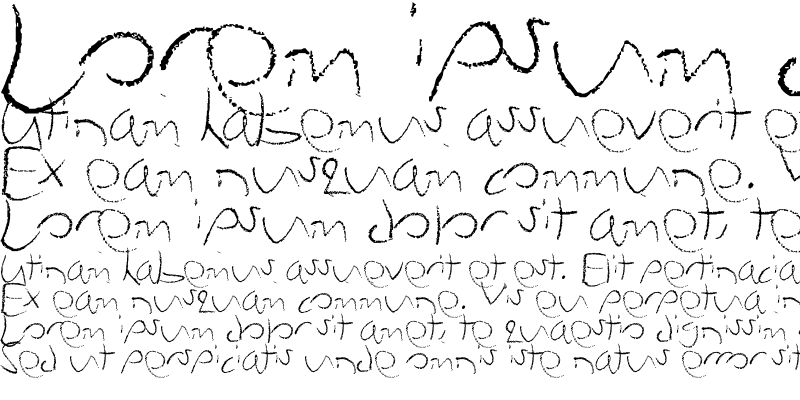 Lorem ipsum
Utinam habemus assueverit
Ex eam nusquam commune.
Lorem ipsum dolor sit amet, te
Utinam habemus assueverit et est. Elit pertinacia
Ex eam nusquam commune. Vis eu perpetua in
Lorem ipsum dolor sit amet, te quaestio dignissim
Sed ut perspiciatis unde omnis iste natus error sit